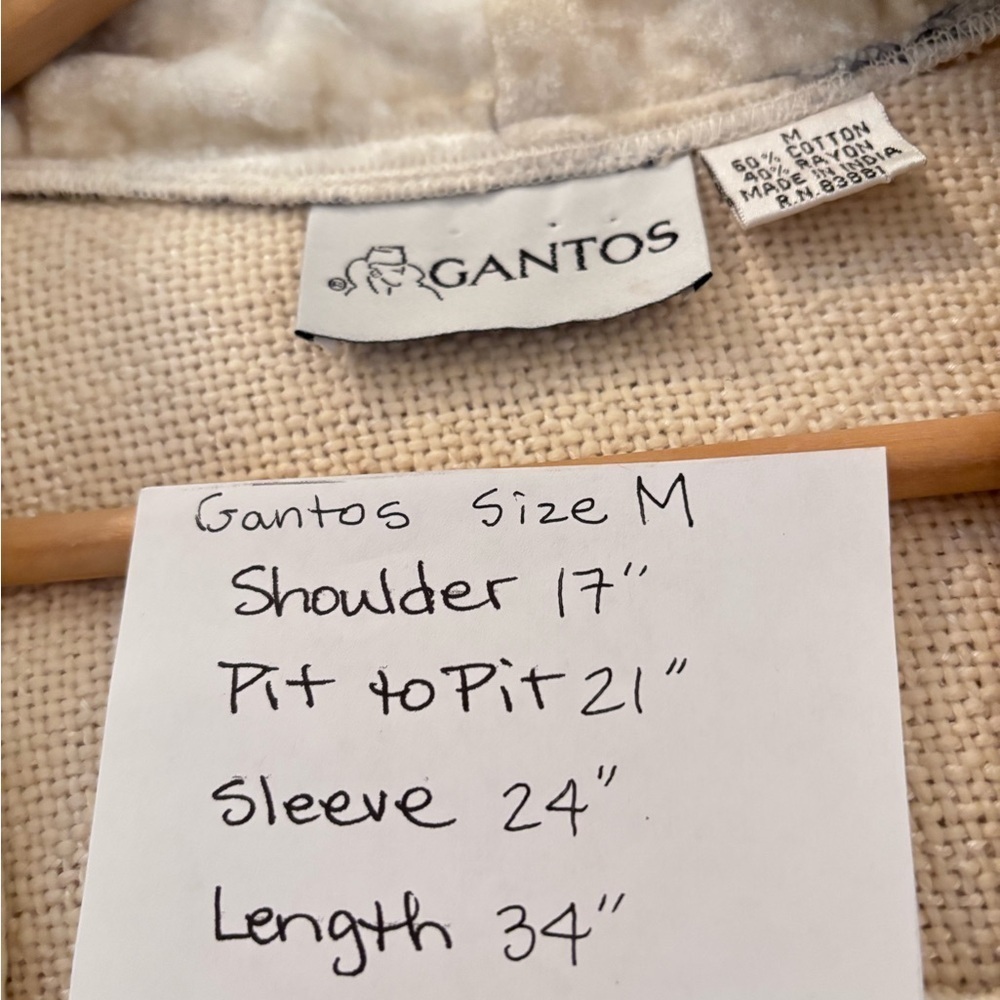 M
60% COTTON
40% RAYON
MADE IN INDIA
R.N.83881
GANTOS
Gantos Size M
Shoulder 17"
Pit to Pit 21"
Sleeve 24"
Length 34"